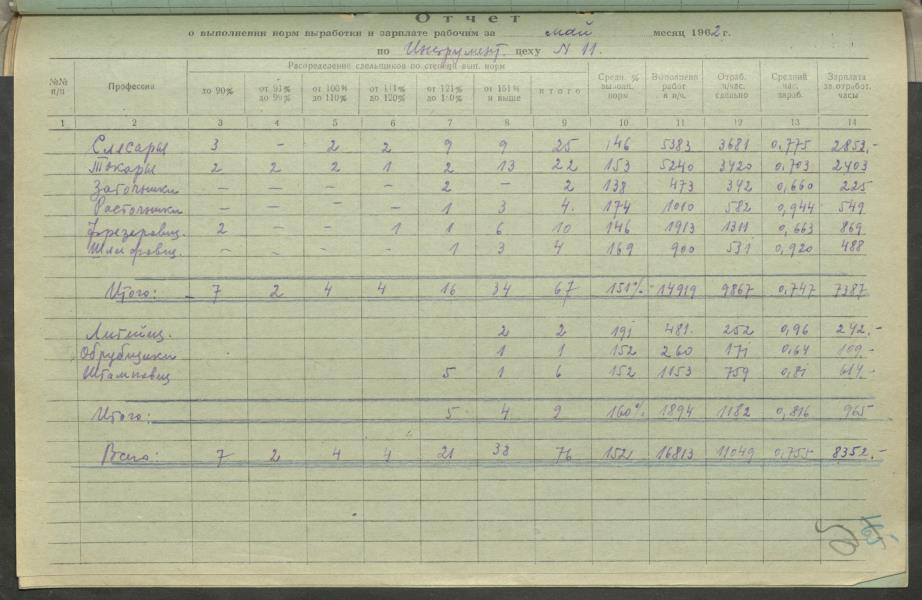 Отчет
о выполнении норм выработки и зарплате рабочим за май месяц 1962 г.
по Инструмент. цеху N 11.
№№ п/п Профессия Распределение сдельщиков по степени вып. норм Средн. % выполн. норм Выполнено работ в н/ч. Отраб. ч/час. сдельно Средний час. зараб. Зарплата за отработ. часы
до 90% от 91% до 99% от 100% до 110% от 111% до 120% от 121% до 150% от 151% и выше итого
1 2 3 4 5 6 7 8 9 10 11 12 13 14
Слесары 3 - 2 2 9 9 25 146 5383 3681 0,775 2852,-
Токары 2 2 2 1 2 13 22 153 5240 3420 0,703 2403
Заточники - - - - 2 - 2 138 473 342 0,660 225
Расточники - - - - 1 3 4. 174 1010 582 0,944 549
Фрезеровщ. 2 - - 1 1 6 10 146 1913 1311 0,663 869
Шлифовщ. - - - - 1 3 4 169 900 531 0,920 488
Итого: - 7 2 4 4 16 34 67 151% 14919 9867 0,747 7387
Литейщ. 2 2 191 481. 252 0,96 242,-
Обрубщики 1 1 152 260 171 0,64 109,-
Штамповщ 5 1 6 152 1153 759 0,81 614,-
Итого: 5 4 9 160% 1894 1182 0,816 965
Всего: 7 2 4 4 21 38 76 152 16813 11049 0,755 8352,-